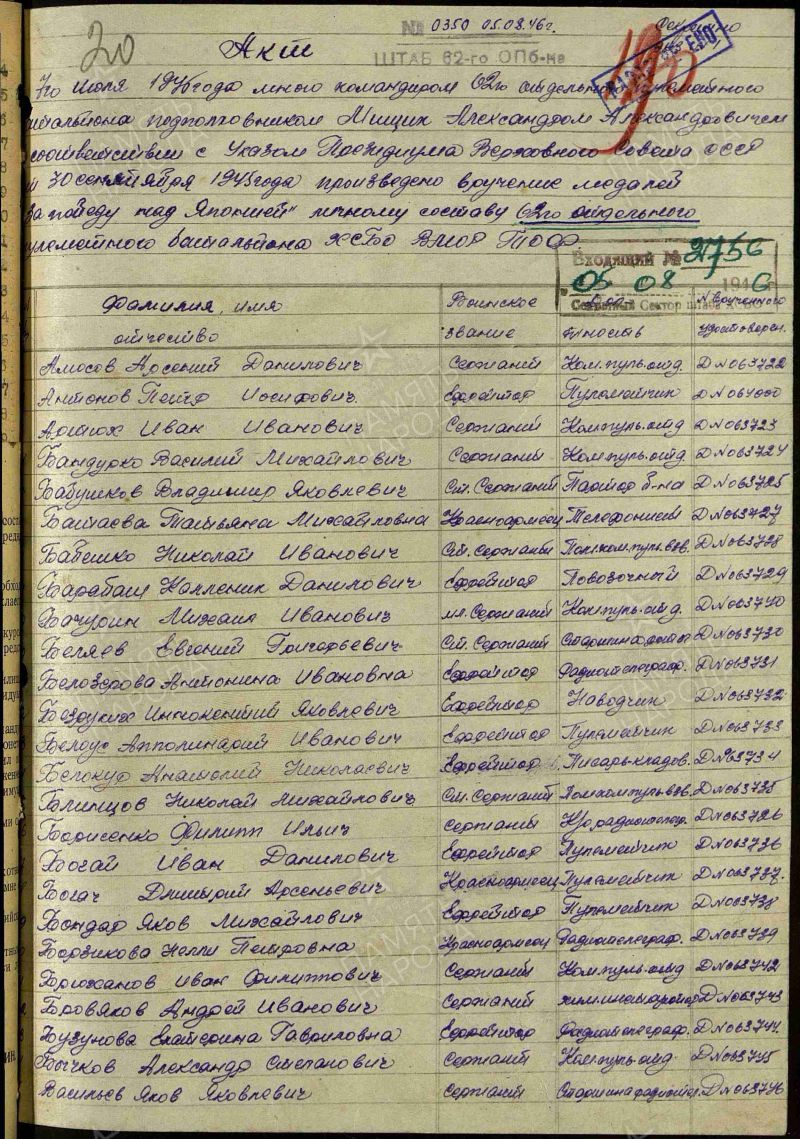 20
№ 0350 05.08.46г.
ШТАБ 62-го ОПб-на
Акт
июля 1946 года мною командиром 62го отдельного пулеметного
батальона подполковником Мищик Александром Александровичем
соответствии с Указом Президиума Верховного Совета СССР
30 сентября 1945 года произведено вручение медалей
"За победу над Японией" личному составу 62го отдельного
пулеметного батальона ХСБО ВМОР ТОФ.
Входящий № 2756
05 08 1946
Секретный Сектор штаба
Фамилия, имя отчество | Воинское звание | Долж ность | № врученного удостоверен.
Амосов Арсений Данилович | Сержант | Ком.пуль.отд. | Д№063722
Антонов Петр Иосифович | Ефрейтор | Пулеметчик | Д№064000
Иван Иванович | Сержант | Ком.пуль.отд. | Д№063723
Бандурко Василий Михайлович | Сержант | Ком.пуль.отд. | Д№063724
Бабушков Владимир Яковлевич | Ст. Сержант | Парторг б-на | Д№063725
Баитаева Татьяна Михайловна | Красноармеец | Телефонист | Д№063727
Бабешко Николай Иванович | Ст. сержант | Помком.пуль.взв. | Д№063728
Барабаш Каленик Данилович | Ефрейтор | Повозочный | Д№063729
Бачурин Михаил Иванович | мл. Сержант | Ком.пуль.отд. | Д№063740
Беляев Евгений Григорьевич | Ст. Сержант | Старшина роты | Д№063730
Белозерова Антонина Ивановна | Ефрейтор | Радиотелеграф. | Д№063731
Бездуких Иннокентий Яковлевич | Ефрейтор | Наводчик | Д№063732
Белоус Апполинарий Иванович | Ефрейтор | Пулеметчик | Д№063733
Белокур Анатолий Николаевич | Ефрейтор | Писарь-кладов. | Д№63734
Блинцов Николай Михайлович | Ст. Сержант | Помком.пуль.взв. | Д№063735
Борисенко Филипп Ильич | сержант | радиотелегр. | Д№063726
Богай Иван Данилович | Ефрейтор | Пулеметчик | Д№063736
Богач Дмитрий Арсеньевич | Красноармеец | Пулеметчик | Д№063737.
Бондар Яков Михайлович | Ефрейтор | Пулеметчик | Д№063738
Борзикова Нелли Петровна | Красноармеец | Радиотелеграф. | Д№063739
Брюханов Иван Филиппович | Сержант | Ком.пуль.отд | Д№063742
Бровяков Андрей Иванович | Сержант | хим.инструктор | Д№063743
Бузунова Екатерина Гавриловна | Ефрейтор | Радиотелеграф. | Д№063744
Бычков Александр Степанович | Сержант | Ком.пуль.отд. | Д№063745
Васильев Яков Яковлевич | Сержант | Старшина | Д№063746
ПАМЯТЬ НАРОДА